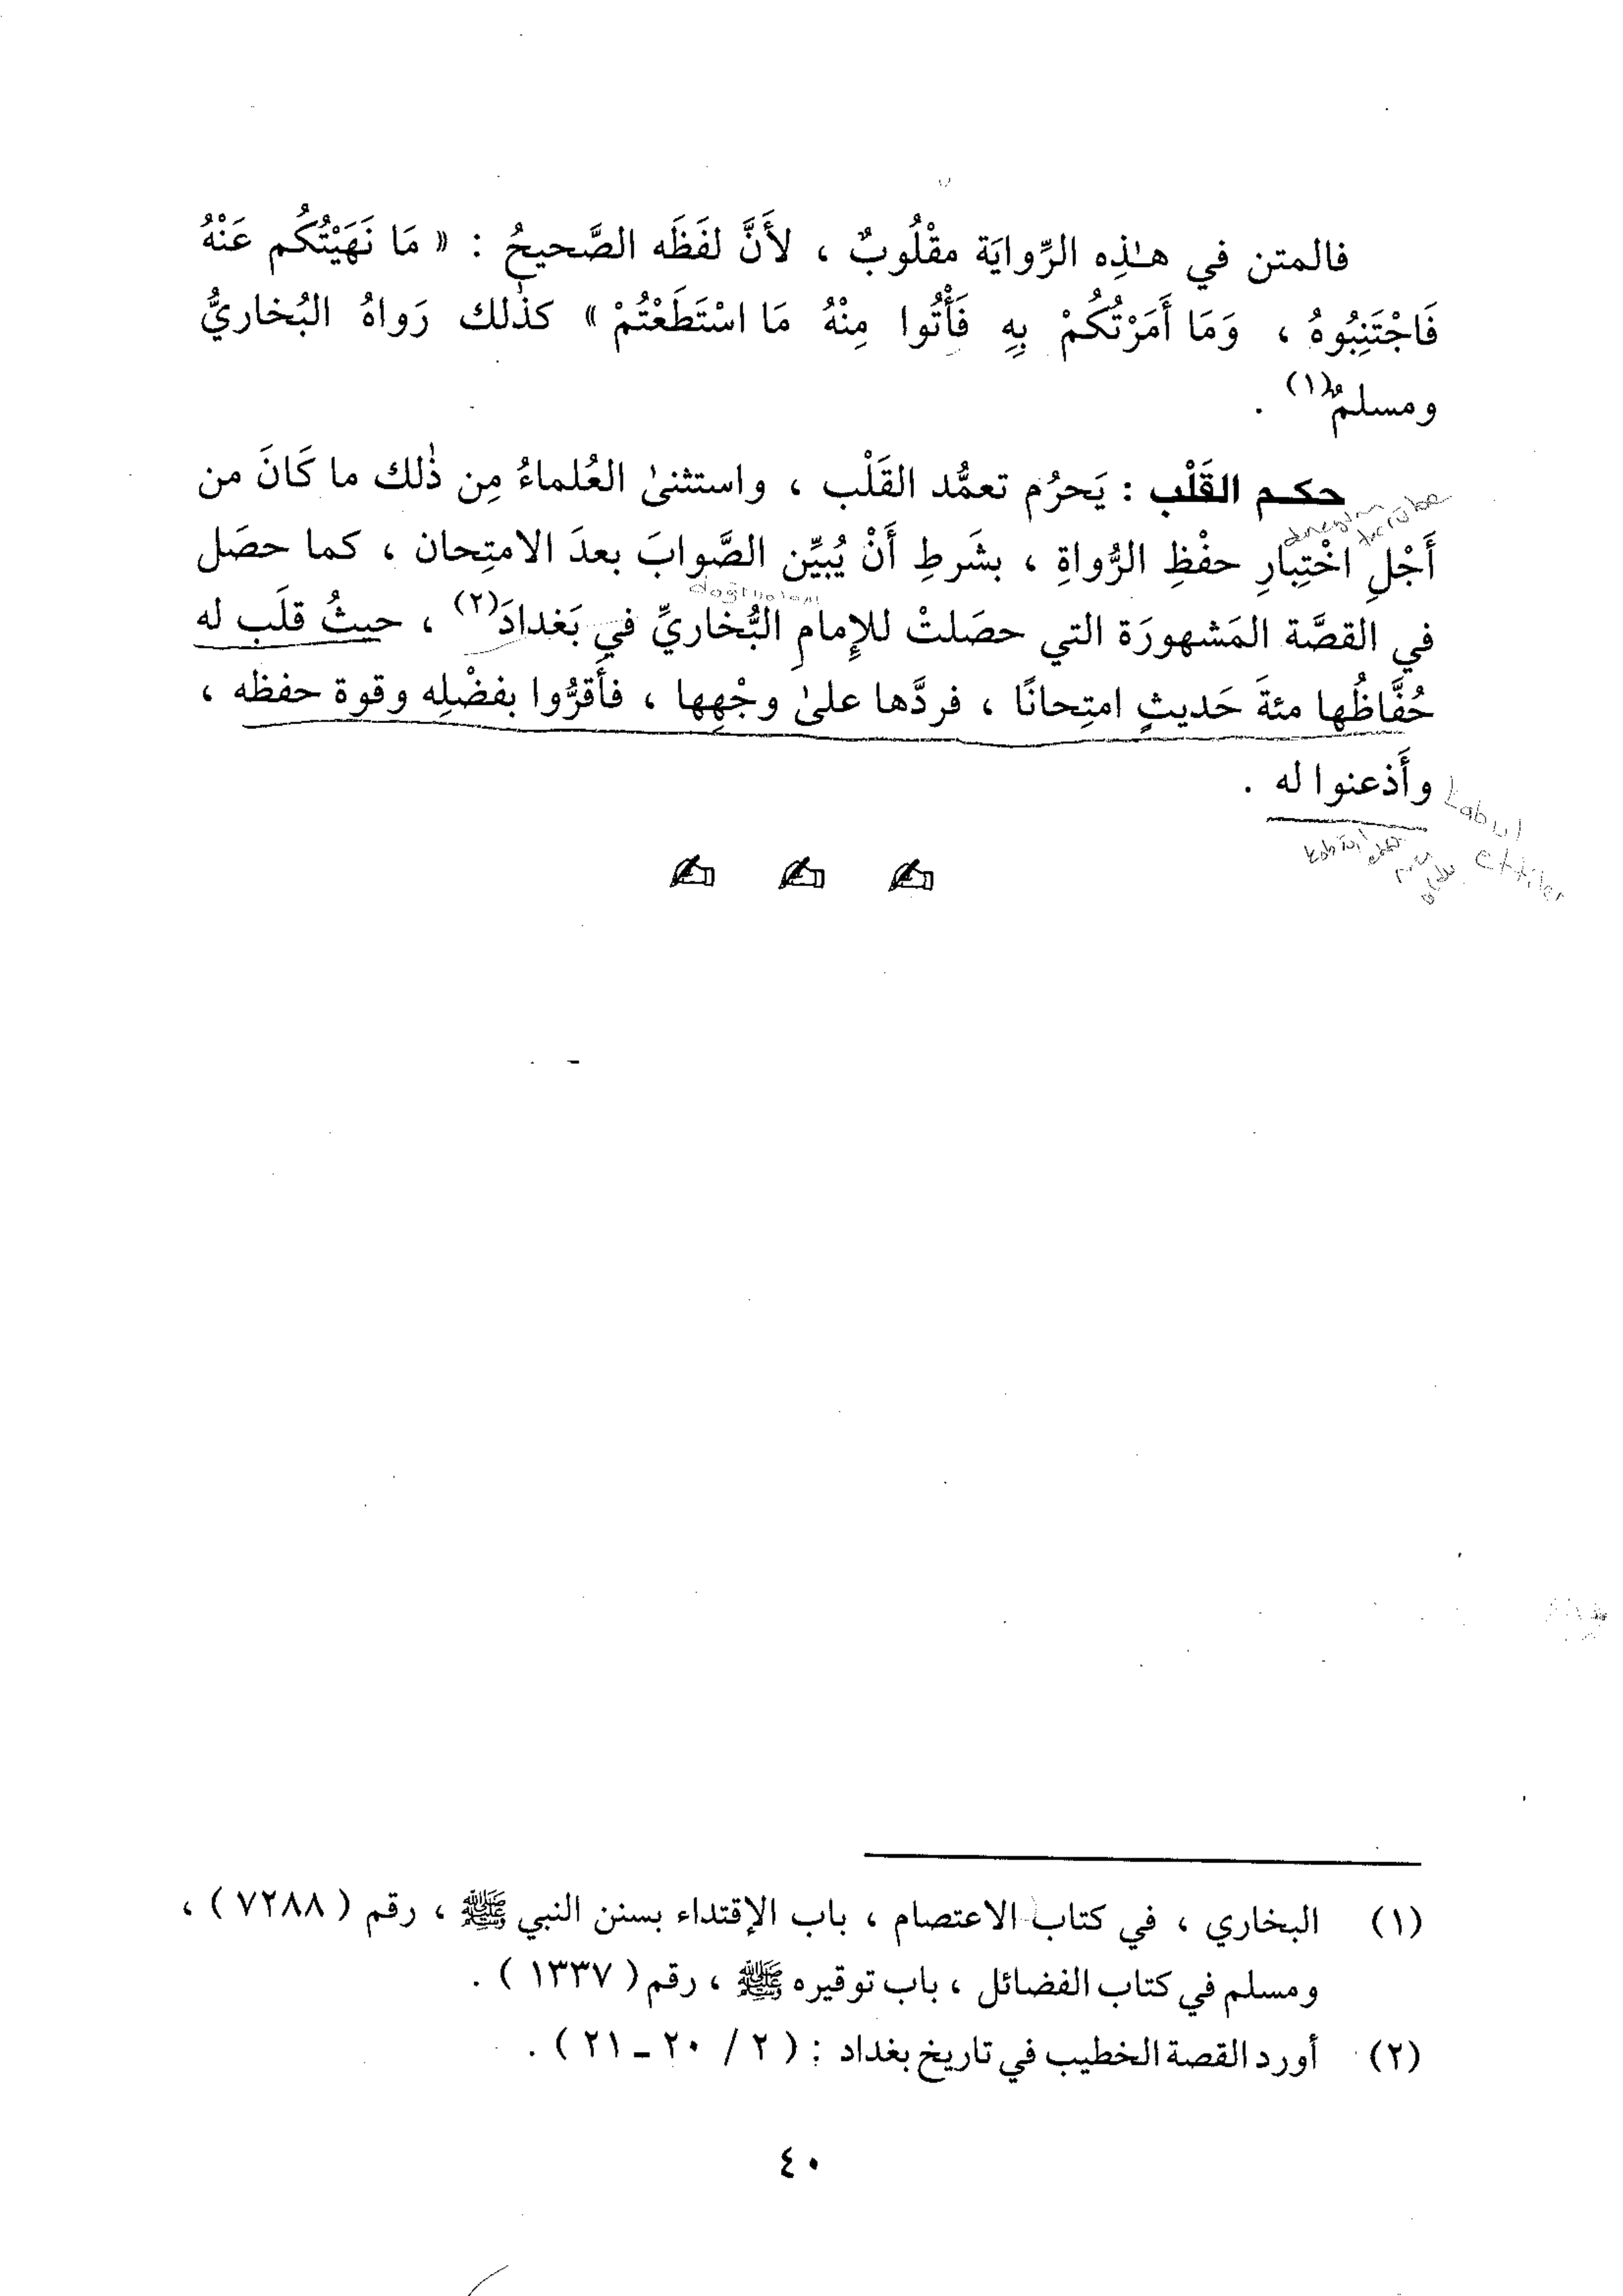 فالمتن في هـٰذِه الرِّوايَة مقْلُوبٌ ، لأَنَّ لفَظَه الصَّحيحُ : « مَا نَهَيْتُكُم عَنْهُ
فَاجْتَنِبُوهُ ، وَمَا أَمَرْتُكُمْ بِهِ فَأْتُوا مِنْهُ مَا اسْتَطَعْتُمْ » كذٰلك رَواهُ البُخاريُّ
ومسلمٌ(١) .
حكـم القَلْب : يَحرُم تعمُّد القَلْب ، واستثنىٰ العُلماءُ مِن ذٰلك ما كَانَ من
أَجْلِ اخْتِبارِ حفْظِ الرُّواةِ ، بشَرطِ أَنْ يُبيِّن الصَّوابَ بعدَ الامتِحان ، كما حصَل
في القصَّة المَشهورَة التي حصَلتْ للإِمامِ البُّخاريِّ في بَغدادَ(٢) ، حيثُ قلَب له
حُفَّاظُها مئةَ حَديثٍ امتِحانًا ، فردَّها علىٰ وجْهِها ، فأَقرُّوا بفضْلِه وقوة حفظه ،
وأَذعنوا له .
kabul
ettiler
(١) البخاري ، في كتاب الاعتصام ، باب الإقتداء بسنن النبي ﷺ ، رقم ( ٧٢٨٨ ) ،
ومسلم في كتاب الفضائل ، باب توقيره ﷺ ، رقم ( ١٣٣٧ ) .
(٢) أورد القصة الخطيب في تاريخ بغداد : ( ٢ / ٢٠ ـ ٢١ ) .
٤٠